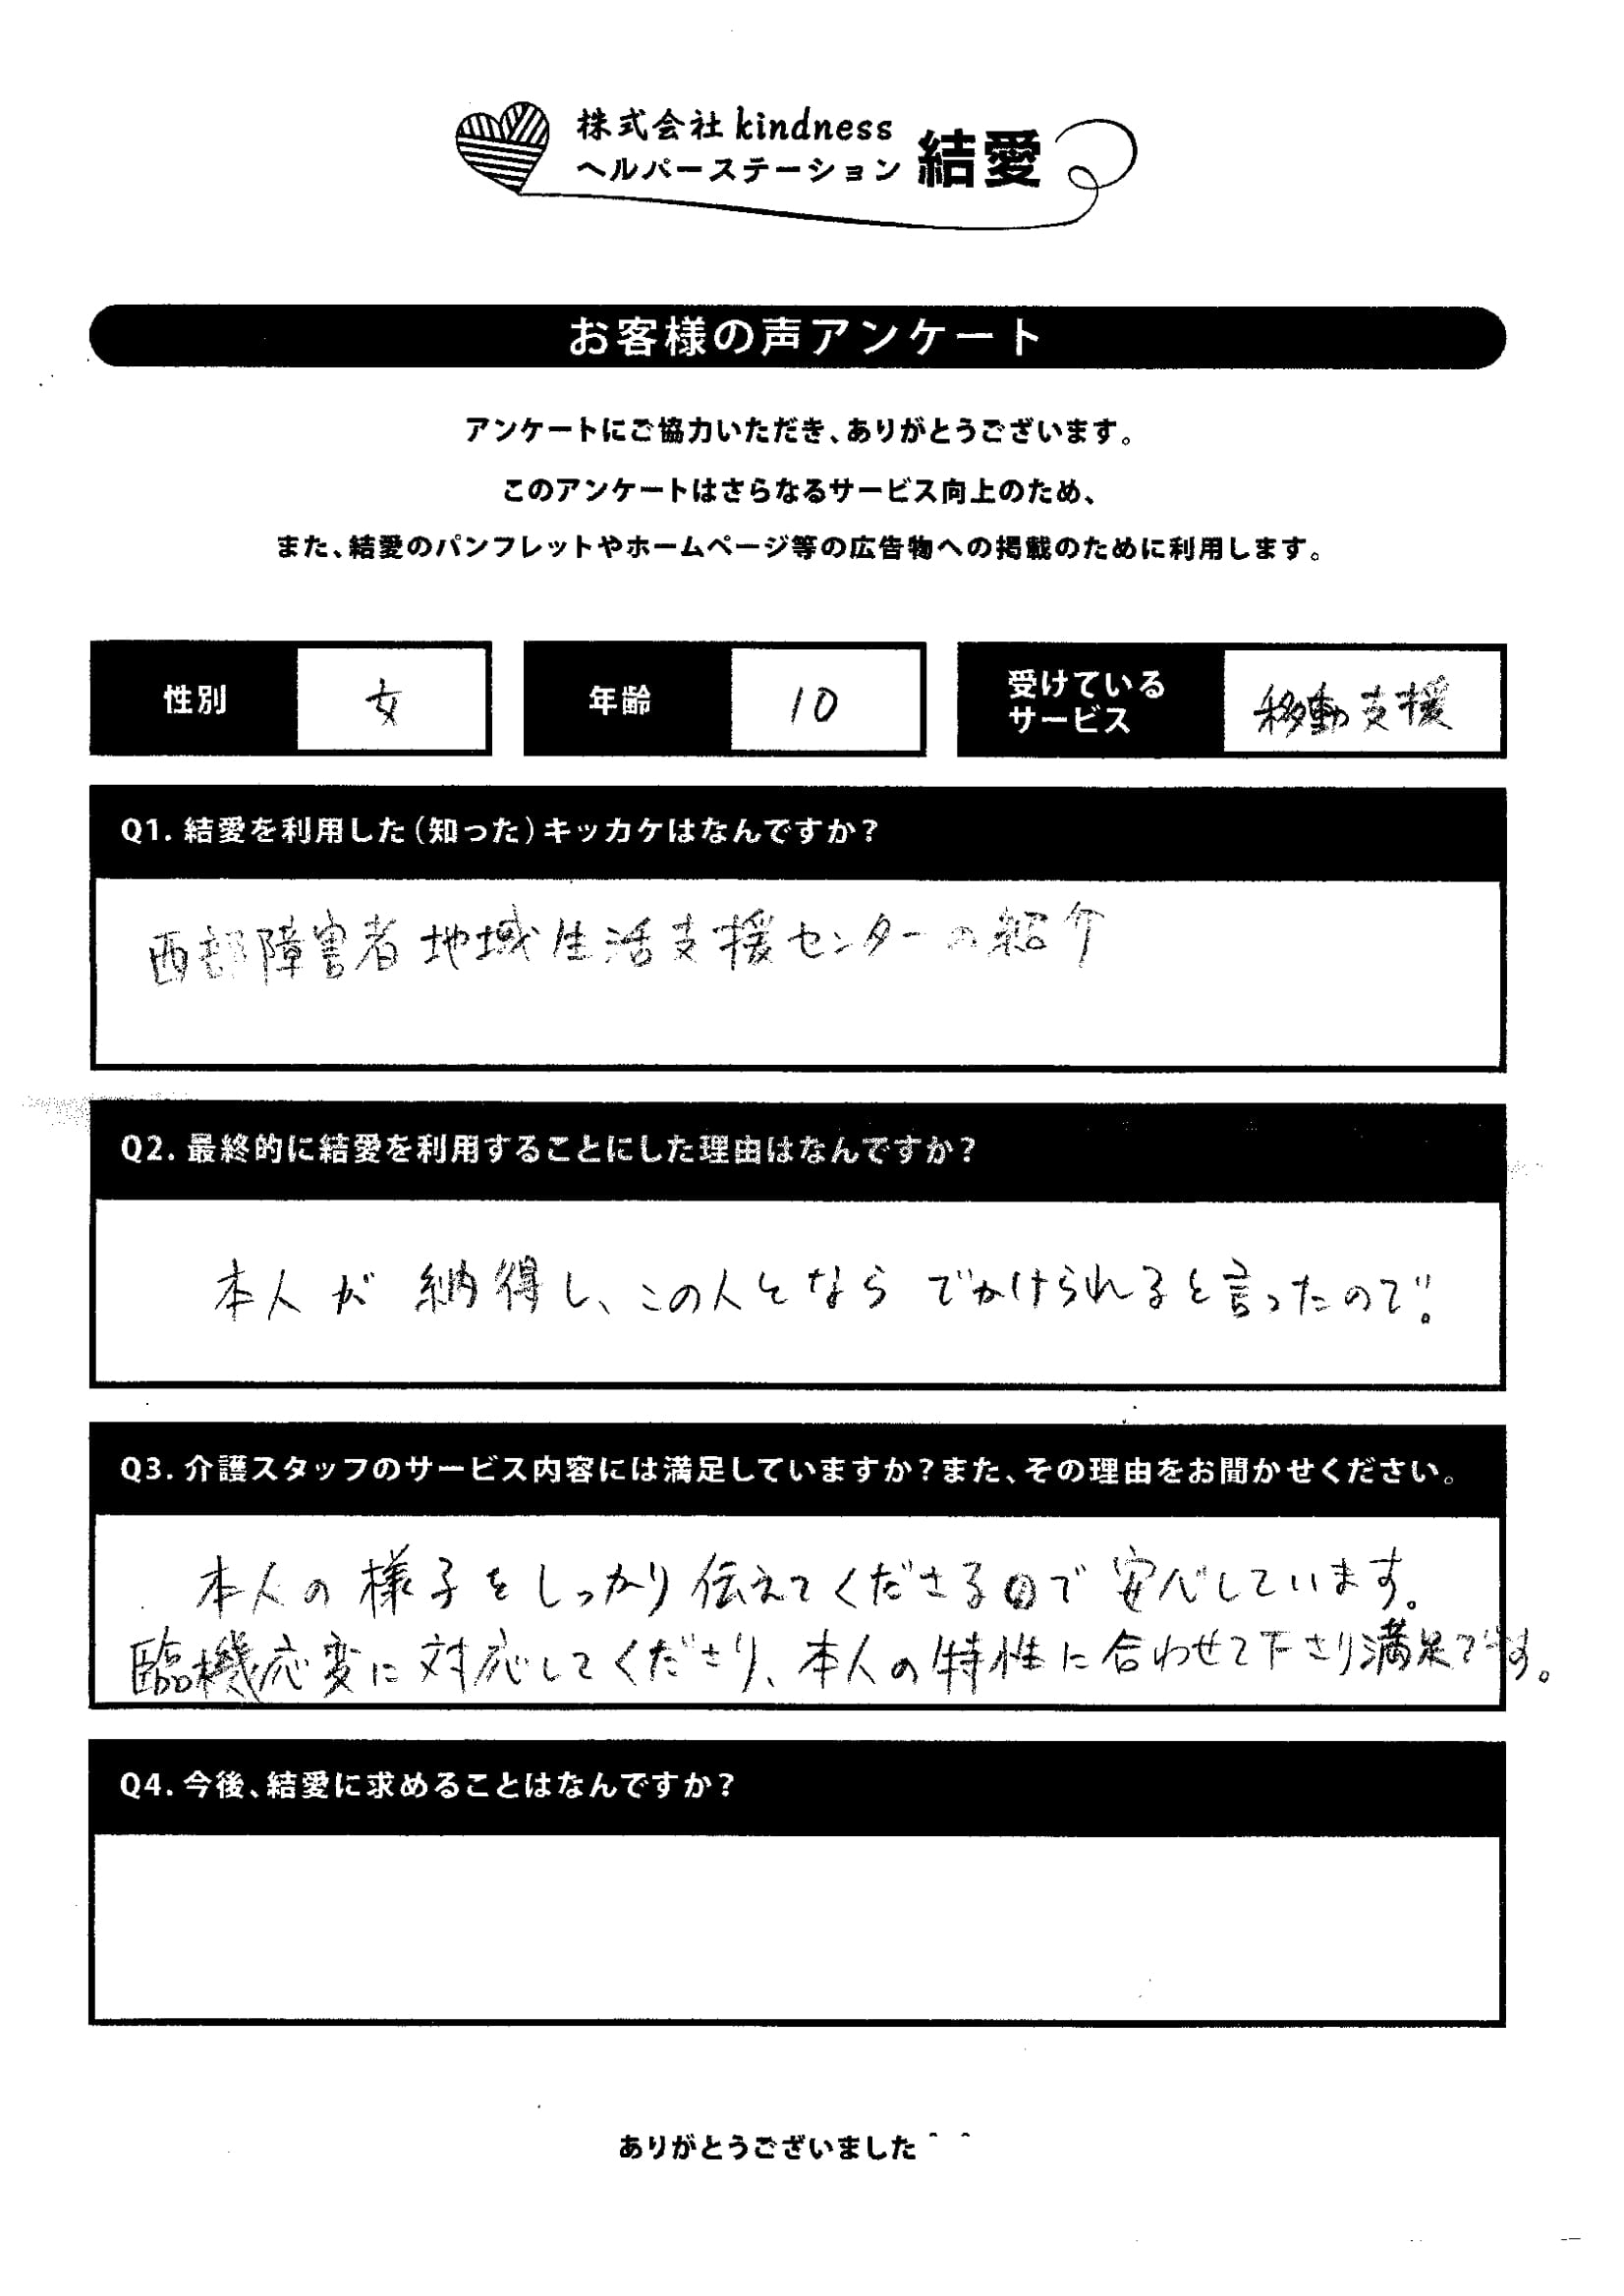 株式会社 kindness
ヘルパーステーション 結愛
お客様の声アンケート
アンケートにご協力いただき、ありがとうございます。
このアンケートはさらなるサービス向上のため、
また、結愛のパンフレットやホームページ等の広告物への掲載のために利用します。
性別 女 年齢 10 受けているサービス 移動支援
Q1. 結愛を利用した(知った)キッカケはなんですか?
西部障害者地域生活支援センターの紹介
Q2. 最終的に結愛を利用することにした理由はなんですか?
本人が納得し、この人となら でかけられると言ったので。
Q3. 介護スタッフのサービス内容には満足していますか?また、その理由をお聞かせください。
本人の様子をしっかり伝えてくださるので安心しています。
臨機応変に対応してくださり、本人の特性に合わせて下さり満足です。
Q4. 今後、結愛に求めることはなんですか?
ありがとうございました^ ^